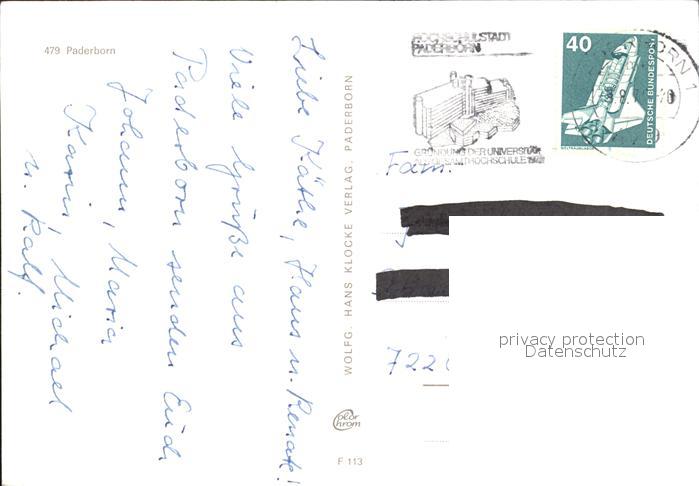 479 Paderborn
Liebe Käthe, Hans u. Renate!
Viele Grüße aus
Paderborn senden Euch
Johann, Maria
Karin, Michael
u. Ralf.
WOLFG. HANS KLOCKE VERLAG, PADERBORN
F 113
HOCHSCHULSTADT
PADERBORN
GRÜNDUNG DER UNIVERSITÄT
ALS GESAMTHOCHSCHULE
40
DEUTSCHE BUNDESPOST
WELTRAUMLABOR
ORN 1
Fam.
722
privacy protection
Datenschutz